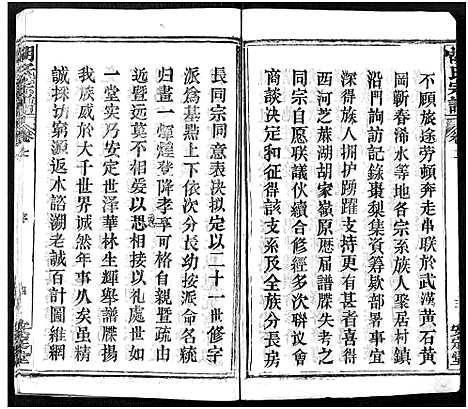 胡氏宗譜
安定堂
不顧旅途勞頓奔走串联於武漢黃石黃
岡蘄春浠水等地各宗系族人聚居村鎮
沿門詢訪記錄棗梨集資籌欵部署事宜
各族人拥护踴躍支持更有
西河芝蕪湖胡家嶺原歷届譜牒失考之
宗自愿联議伏續合修經多次联議會
商談决定和谐該支系及全族分長房
長同宗同意表决拟定以二十一世修字
派為基鼎上下依次分長幼按派命名統
归畫一煙登降可格自親暨疏由
暨远莫不相爱以恐相以礼處世如
一堂矣乃安定世泽華林生輝舉譜牒揚
我族威於大千世界诚然年事八矣虽精
誠採坊窮源返木諮溯老誠百計圖維網
胡氏宗譜
序
四
安定堂